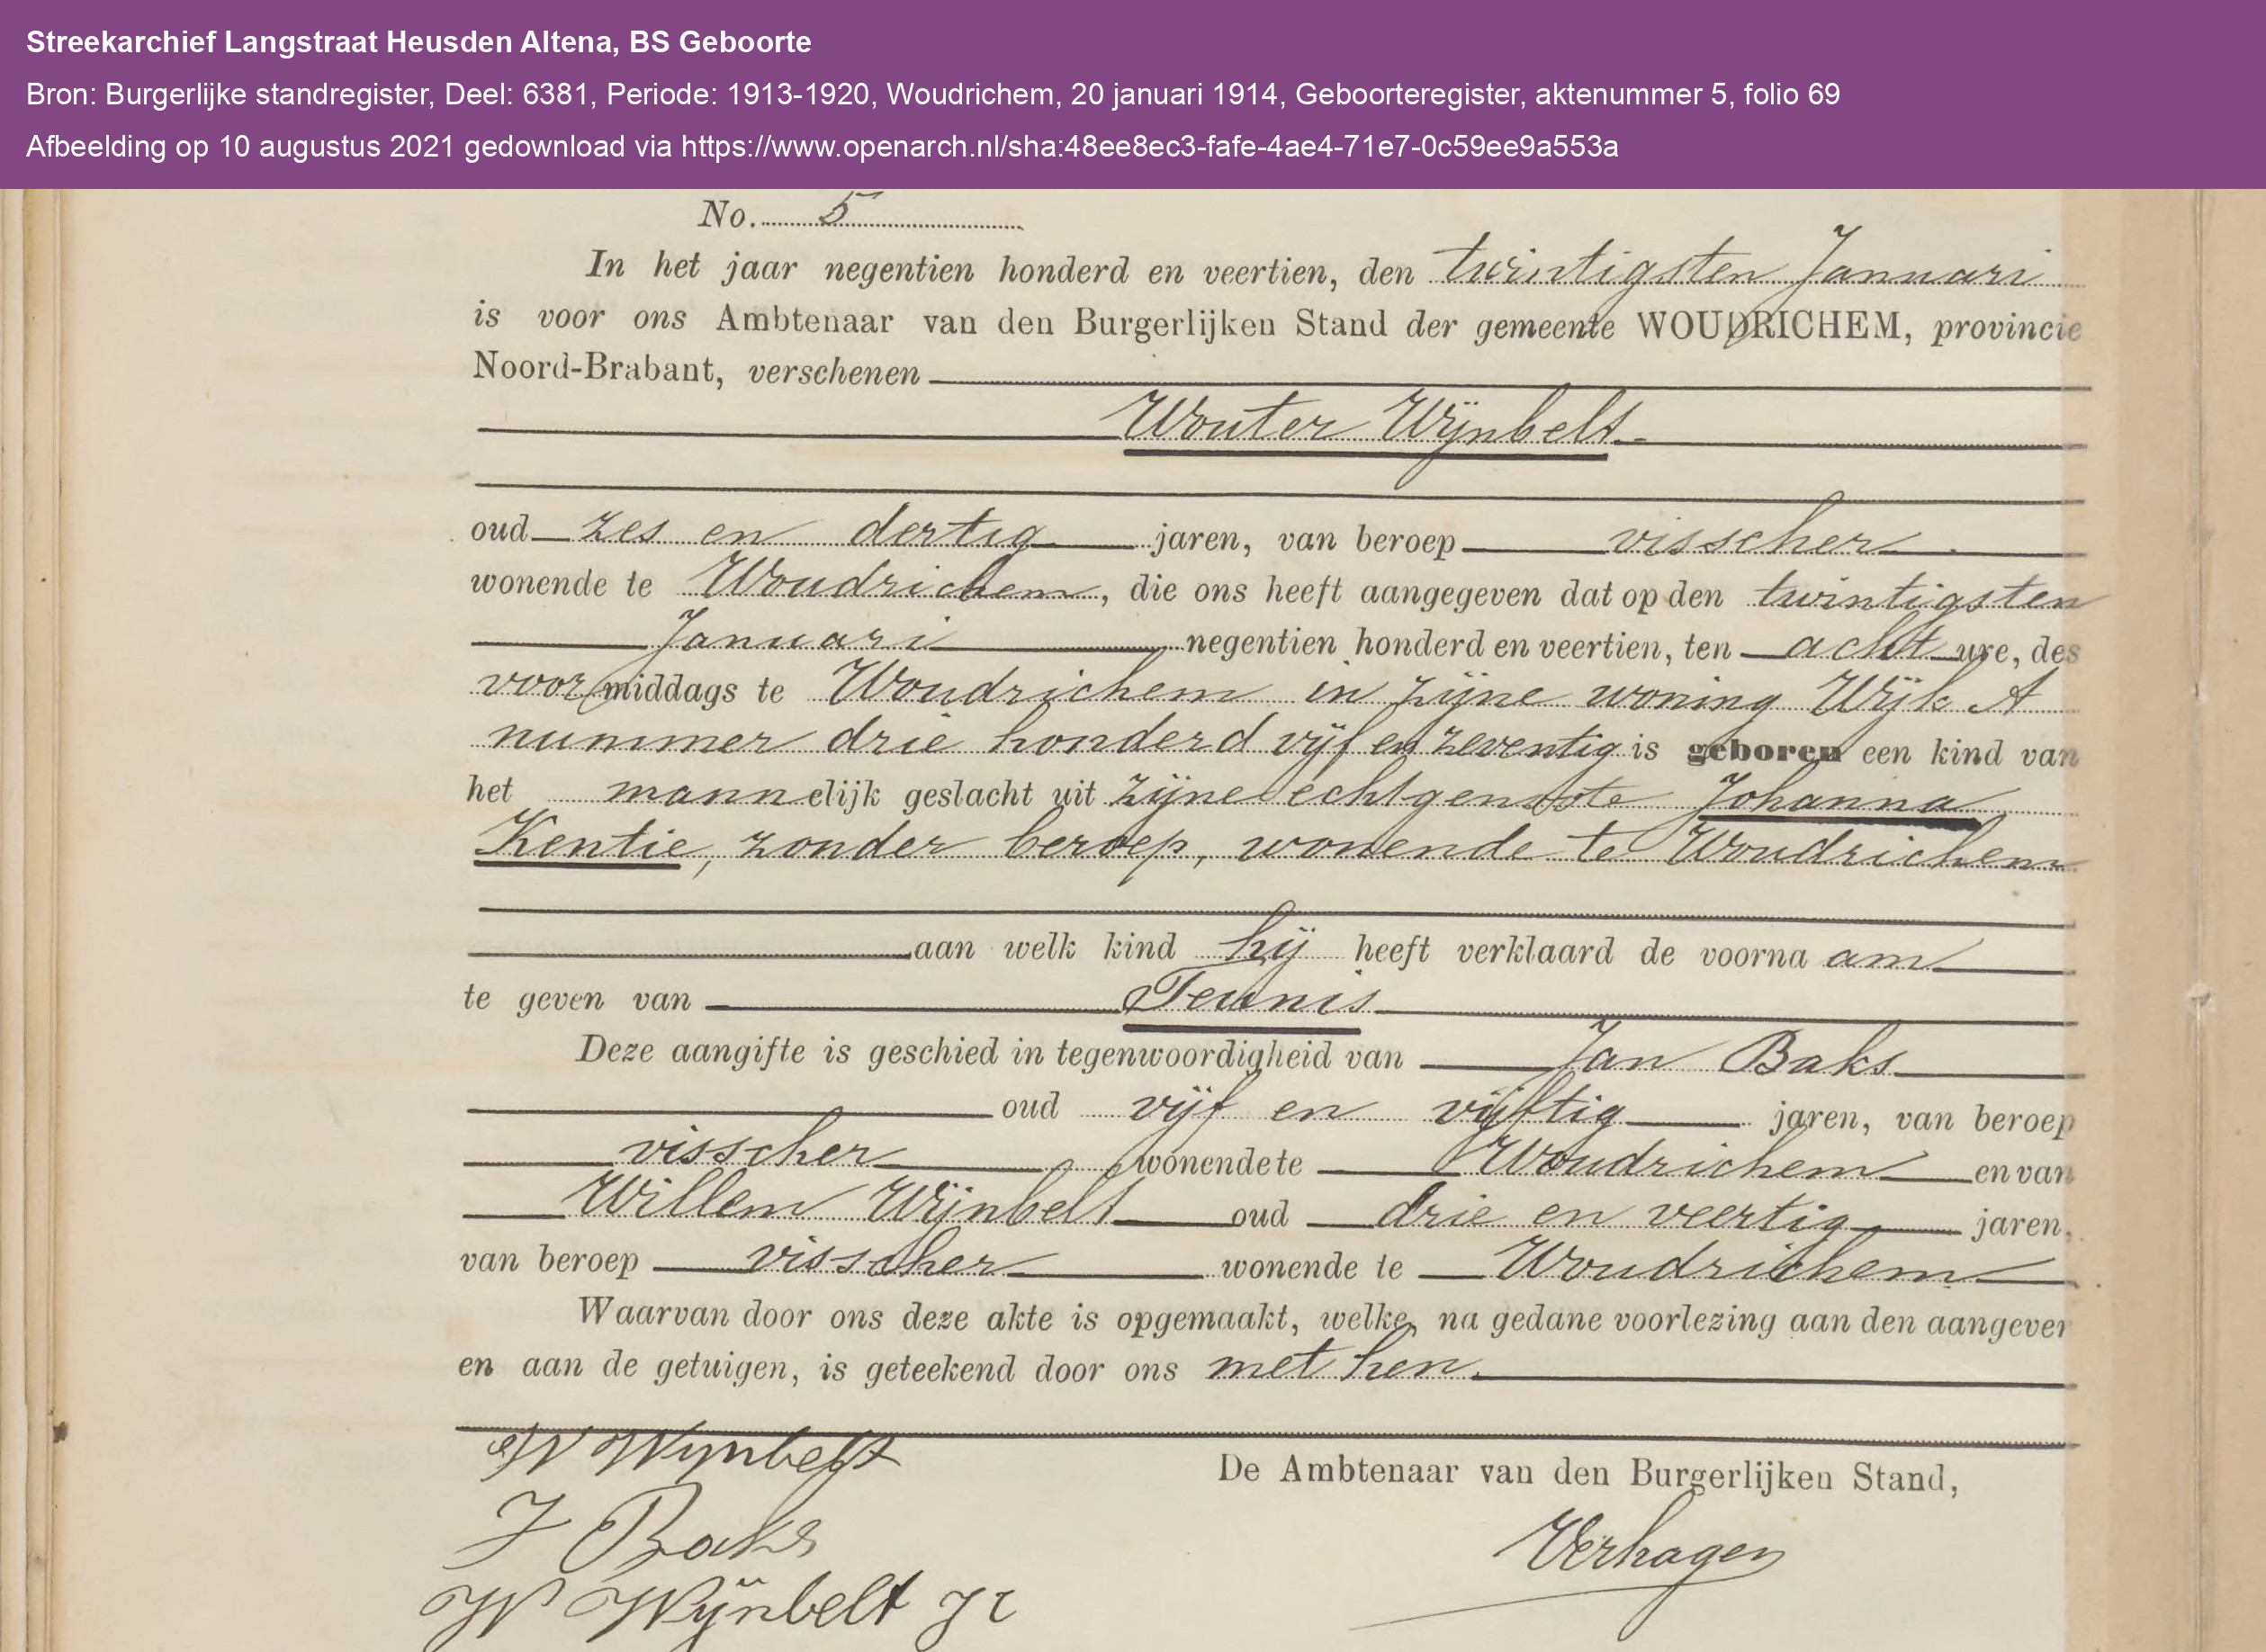 Streekarchief Langstraat Heusden Altena, BS Geboorte
Bron: Burgerlijke standregister, Deel: 6381, Periode: 1913-1920, Woudrichem, 20 januari 1914, Geboorteregister, aktenummer 5, folio 69
Afbeelding op 10 augustus 2021 gedownload via https://www.openarch.nl/sha:48ee8ec3-fafe-4ae4-71e7-0c59ee9a553a
No. 5
In het jaar negentien honderd en veertien, den twintigsten Januari
is voor ons Ambtenaar van den Burgerlijken Stand der gemeente WOUDRICHEM, provincie
Noord-Brabant, verschenen
Wouter Wijnbelt
oud zes en dertig jaren, van beroep visscher
wonende te Woudrichem, die ons heeft aangegeven dat op den twintigsten
Januari negentien honderd en veertien, ten acht ure, des
voormiddags te Woudrichem in zijne woning Wijk A
nummer drie honderd vijf en zeventig is geboren een kind van
het mannelijk geslacht uit zijne echtgenoote Johanna
Kentie, zonder beroep, wonende te Woudrichem
aan welk kind hij heeft verklaard de voornaam
te geven van Teunis
Deze aangifte is geschied in tegenwoordigheid van Jan Baks
oud vijf en vijftig jaren, van beroep
visscher wonende te Woudrichem en van
Willem Wijnbelt oud drie en veertig jaren,
van beroep visscher wonende te Woudrichem
Waarvan door ons deze akte is opgemaakt, welke, na gedane voorlezing aan den aangever
en aan de getuigen, is geteekend door ons met hen.
W Wijnbelt
De Ambtenaar van den Burgerlijken Stand,
J Baks
Verhagen
W Wijnbelt Jr